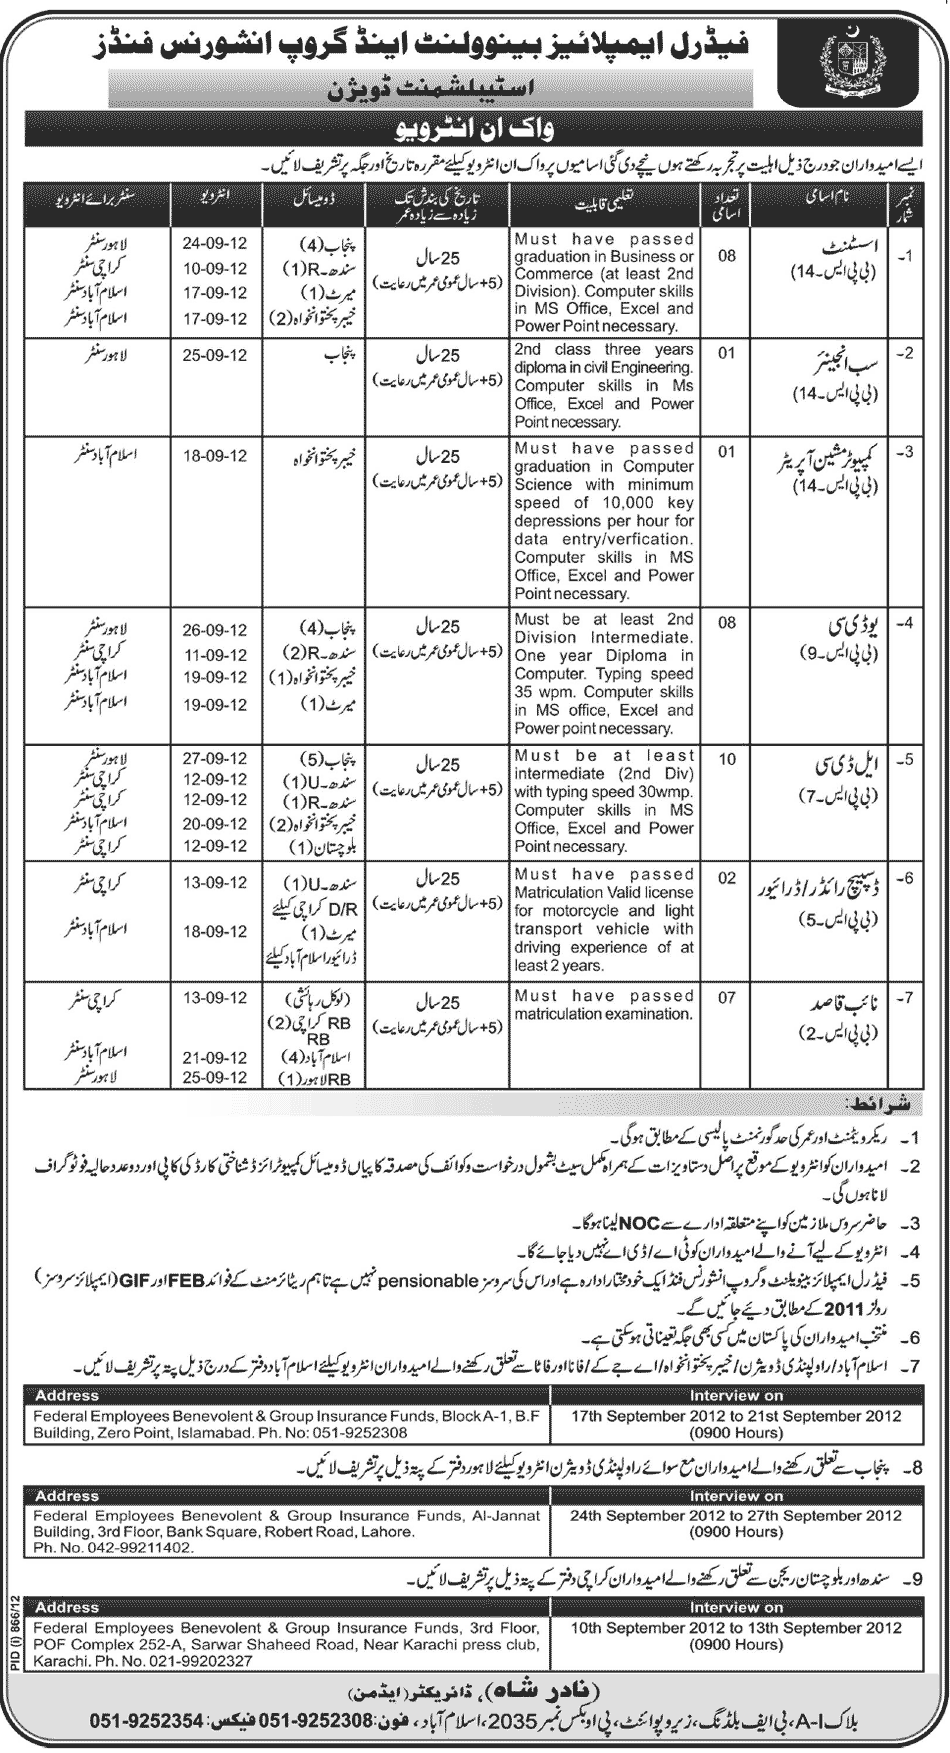 فیڈرل ایمپلائیز بینوولنٹ اینڈ گروپ انشورنس فنڈز
اسٹیبلشمنٹ ڈویژن
واک ان انٹرویو
ایسے امیدواران جو درج ذیل اہلیت پر تجربہ رکھتے ہوں نیچے دی گئی اسامیوں پر واک ان انٹرویو کیلئے مقررہ تاریخ اور جگہ پر تشریف لائیں۔
نمبر شمار نام اسامی تعداد اسامی تعلیمی قابلیت تاریخ کی بندش تک زیادہ سے زیادہ عمر ڈومیسائل انٹرویو سنٹر برائے انٹرویو
1۔ اسسٹنٹ
(بی پی ایس۔14)
08
Must have passed
graduation in Business or
Commerce (at least 2nd
Division). Computer skills
in MS Office, Excel and
Power Point necessary.
25 سال
(5+ سال عمومی عمر میں رعایت)
پنجاب (4) 24-09-12 لاہور سنٹر
سندھ۔R (1) 10-09-12 کراچی سنٹر
میرٹ (1) 17-09-12 اسلام آباد سنٹر
خیبر پختونخواہ (2) 17-09-12 اسلام آباد سنٹر
2۔ سب انجینئر
(بی پی ایس۔14)
01
2nd class three years
diploma in civil Engineering.
Computer skills in Ms
Office, Excel and Power
Point necessary.
25 سال
(5+ سال عمومی عمر میں رعایت)
پنجاب 25-09-12 لاہور سنٹر
3۔ کمپیوٹر مشین آپریٹر
(بی پی ایس۔14)
01
Must have passed
graduation in Computer
Science with minimum
speed of 10,000 key
depressions per hour for
data entry/verfication.
Computer skills in MS
Office, Excel and Power
Point necessary.
25 سال
(5+ سال عمومی عمر میں رعایت)
خیبر پختونخواہ 18-09-12 اسلام آباد سنٹر
4۔ یو ڈی سی
(بی پی ایس۔9)
08
Must be at least 2nd
Division Intermediate.
One year Diploma in
Computer. Typing speed
35 wpm. Computer skills
in MS office, Excel and
Power point necessary.
25 سال
(5+ سال عمومی عمر میں رعایت)
پنجاب (4) 26-09-12 لاہور سنٹر
سندھ۔R (2) 11-09-12 کراچی سنٹر
خیبر پختونخواہ (1) 19-09-12 اسلام آباد سنٹر
میرٹ (1) 19-09-12 اسلام آباد سنٹر
5۔ ایل ڈی سی
(بی پی ایس۔7)
10
Must be at least
intermediate (2nd Div)
with typing speed 30wmp.
Computer skills in MS
Office, Excel and Power
Point necessary.
25 سال
(5+ سال عمومی عمر میں رعایت)
پنجاب (5) 27-09-12 لاہور سنٹر
سندھ۔U (1) 12-09-12 کراچی سنٹر
سندھ۔R (1) 12-09-12 کراچی سنٹر
خیبر پختونخواہ (2) 20-09-12 اسلام آباد سنٹر
بلوچستان (1) 12-09-12 کراچی سنٹر
6۔ ڈسپیچ رائڈر/ڈرائیور
(بی پی ایس۔5)
02
Must have passed
Matriculation Valid license
for motorcycle and light
transport vehicle with
driving experience of at
least 2 years.
25 سال
(5+ سال عمومی عمر میں رعایت)
سندھ۔U (1) 13-09-12 کراچی سنٹر
D/R کراچی کیلئے
میرٹ (1) 18-09-12 اسلام آباد سنٹر
ڈرائیور اسلام آباد کیلئے
7۔ نائب قاصد
(بی پی ایس۔2)
07
Must have passed
matriculation examination.
25 سال
(5+ سال عمومی عمر میں رعایت)
(لوکل رہائشی) 13-09-12 کراچی سنٹر
RB کراچی (2)
RB
اسلام آباد (4) 21-09-12 اسلام آباد سنٹر
RB لاہور (1) 25-09-12 لاہور سنٹر
شرائط:
1۔ ریکروٹمنٹ اور عمر کی حد گورنمنٹ پالیسی کے مطابق ہوگی۔
2۔ امیدواران کو انٹرویو کے موقع پر اصل دستاویزات کے ہمراہ مکمل سیٹ بشمول درخواست و کوائف کی مصدقہ کاپیاں ڈومیسائل کمپیوٹرائزڈ شناختی کارڈ کی کاپی اور دو عدد حالیہ فوٹو گراف
لانا ہوں گی۔
3۔ حاضر سروس ملازمین کو اپنے متعلقہ ادارے سے NOC لینا ہوگا۔
4۔ انٹرویو کے لیے آنے والے امیدواران کو ٹی اے/ڈی اے نہیں دیا جائے گا۔
5۔ فیڈرل ایمپلائز بینوولنٹ و گروپ انشورنس فنڈ ایک خود مختار ادارہ ہے اور اس کی سروسز pensionable نہیں ہے تاہم ریٹائرمنٹ کے فوائد FEB اور GIF (ایمپلائز سروسز)
رولز 2011 کے مطابق دیئے جائیں گے۔
6۔ منتخب امیدواران کی پاکستان میں کسی بھی جگہ تعیناتی ہوسکتی ہے۔
7۔ اسلام آباد/راولپنڈی ڈویژن/خیبر پختونخواہ/اے جے کے/فانا اور فاٹا سے تعلق رکھنے والے امیدواران انٹرویو کیلئے اسلام آباد دفتر کے درج ذیل پتہ پر تشریف لائیں۔
Address Interview on
Federal Employees Benevolent & Group Insurance Funds, Block A-1, B.F 17th September 2012 to 21st September 2012
Building, Zero Point, Islamabad. Ph. No: 051-9252308 (0900 Hours)
8۔ پنجاب سے تعلق رکھنے والے امیدواران مع سوائے راولپنڈی ڈویژن انٹرویو کیلئے لاہور دفتر کے پتہ ذیل پر تشریف لائیں۔
Address Interview on
Federal Employees Benevolent & Group Insurance Funds, Al-Jannat 24th September 2012 to 27th September 2012
Building, 3rd Floor, Bank Square, Robert Road, Lahore. (0900 Hours)
Ph. No. 042-99211402.
9۔ سندھ اور بلوچستان ریجن سے تعلق رکھنے والے امیدواران کراچی دفتر کے پتہ ذیل پر تشریف لائیں۔
Address Interview on
Federal Employees Benevolent & Group Insurance Funds, 3rd Floor, 10th September 2012 to 13th September 2012
POF Complex 252-A, Sarwar Shaheed Road, Near Karachi press club, (0900 Hours)
Karachi. Ph. No. 021-99202327
PID (i) 866/12
(نادر شاہ)، ڈائریکٹر (ایڈمن)
بلاک A-I، بی ایف بلڈنگ، زیرو پوائنٹ، پی او بکس نمبر 2035، اسلام آباد، فون: 051-9252308 فیکس: 051-9252354